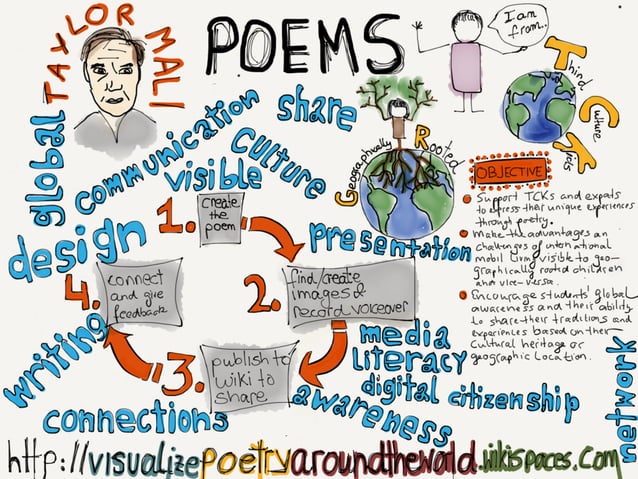 TAYLOR MALI
POEMS
I am
from..
Third Culture Kids
Geographically Rooted
global
communication
share
culture
visible
design
presentation
1.
Create
the
poem
2.
find/create
images &
record voiceover
3.
publish to
wiki to
share
4.
connect
and give
feedback
writing
connections
media
LITERACY
digital citizenship
awareness
network
OBJECTIVE
Support TCKs and expats
to express their unique experiences
through poetry.
Make the advantages an
challenges of international
mobil living visible to geo-
graphically rooted children
and vice-versa.
Encourage students' global
awareness and their ability
to share their traditions and
experiences based on their
Cultural heritage or
geographic Location.
http://visualizepoetryaroundtheworld.wikispaces.com